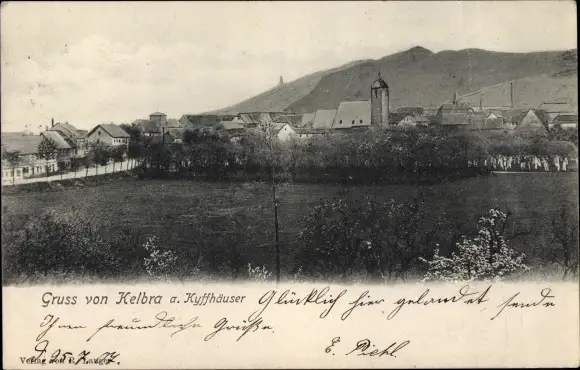 Gruss von Kelbra a. Kyffhäuser Glücklich hier gelandet sende
Ihnen freundliche Grüße
E. Piehl.
Verlag von